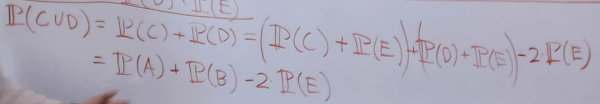 ℙ(C∪D) = ℙ(C) + ℙ(D) = (ℙ(C) + ℙ(E)) + (ℙ(D) + ℙ(E)) - 2·ℙ(E)
= ℙ(A) + ℙ(B) - 2·ℙ(E)